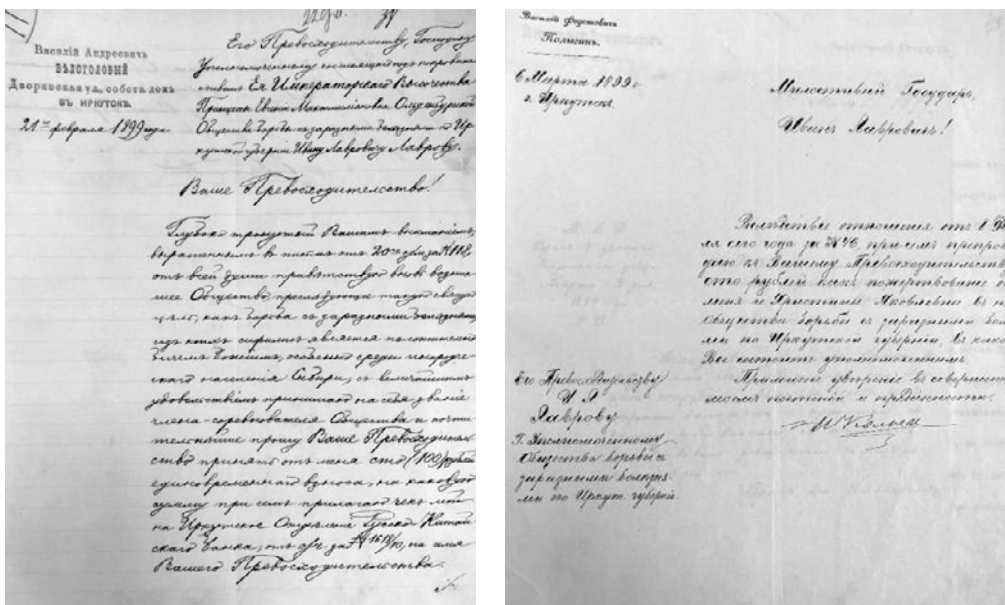 Василій Андреевичъ
БѢЛОГОЛОВЫЙ
Дворянская ул., собств. домъ
ВЪ ИРКУТСКѢ.
21го февраля 1899 года
Его Превосходительству, Господину
Уполномоченному состоящаго подъ покрови-
тельствомъ Ея Императорскаго Высочества
Принцессы Евгеніи Максимиліановны Ольденбургской
Общества борьбы съ заразными болѣзнями въ Ир-
кутской губерніи Ивану Лавровичу Лаврову.
Ваше Превосходительство!
Глубоко тронутый Вашимъ вниманіемъ,
выраженнымъ въ письмѣ отъ 20го за № 118,
отъ всей души привѣтствую вновь возник-
шее Общество преслѣдующее такую
цѣль, какъ борьба съ заразными болѣзнями,
изъ коихъ сифилисъ является
бичемъ Божіимъ, особенно среди инородче-
скаго населенія Сибири, съ величайшимъ
удовольствіемъ принимаю на себя званіе
члена-соревнователя Общества и почти-
тельнѣйше прошу Ваше Превосходитель-
ство принять отъ меня сто (100) рублей
единовременнаго взноса, на каковую
сумму при семъ прилагаю чекъ мой
на Иркутское Отдѣленіе Русско-Китай-
скаго Банка, отъ за № на имя
Вашего Превосходительства.
Василій Фаустовичъ
Колыгинъ.
6 Марта 1899 г.
г. Иркутскъ.
Милостивый Государь,
Иванъ Лавровичъ!
Вслѣдствіе отношенія отъ
сего года за № при семъ препрово
ждаю къ Вашему Превосходительств
сто рублей какъ пожертвованіе о
меня и Христины Яковлевны въ
Общества борьбы съ заразными бол
ми по Иркутской губерніи, въ како
Вы состоите уполномоченнымъ.
Примите увѣреніе въ совершен
моемъ почтеніи и преданности.
Его Превосходительству
И Л
Лаврову
Г. Уполномоченному
Общества борьбы съ
заразными болѣзня-
ми по Иркут. губерніи.